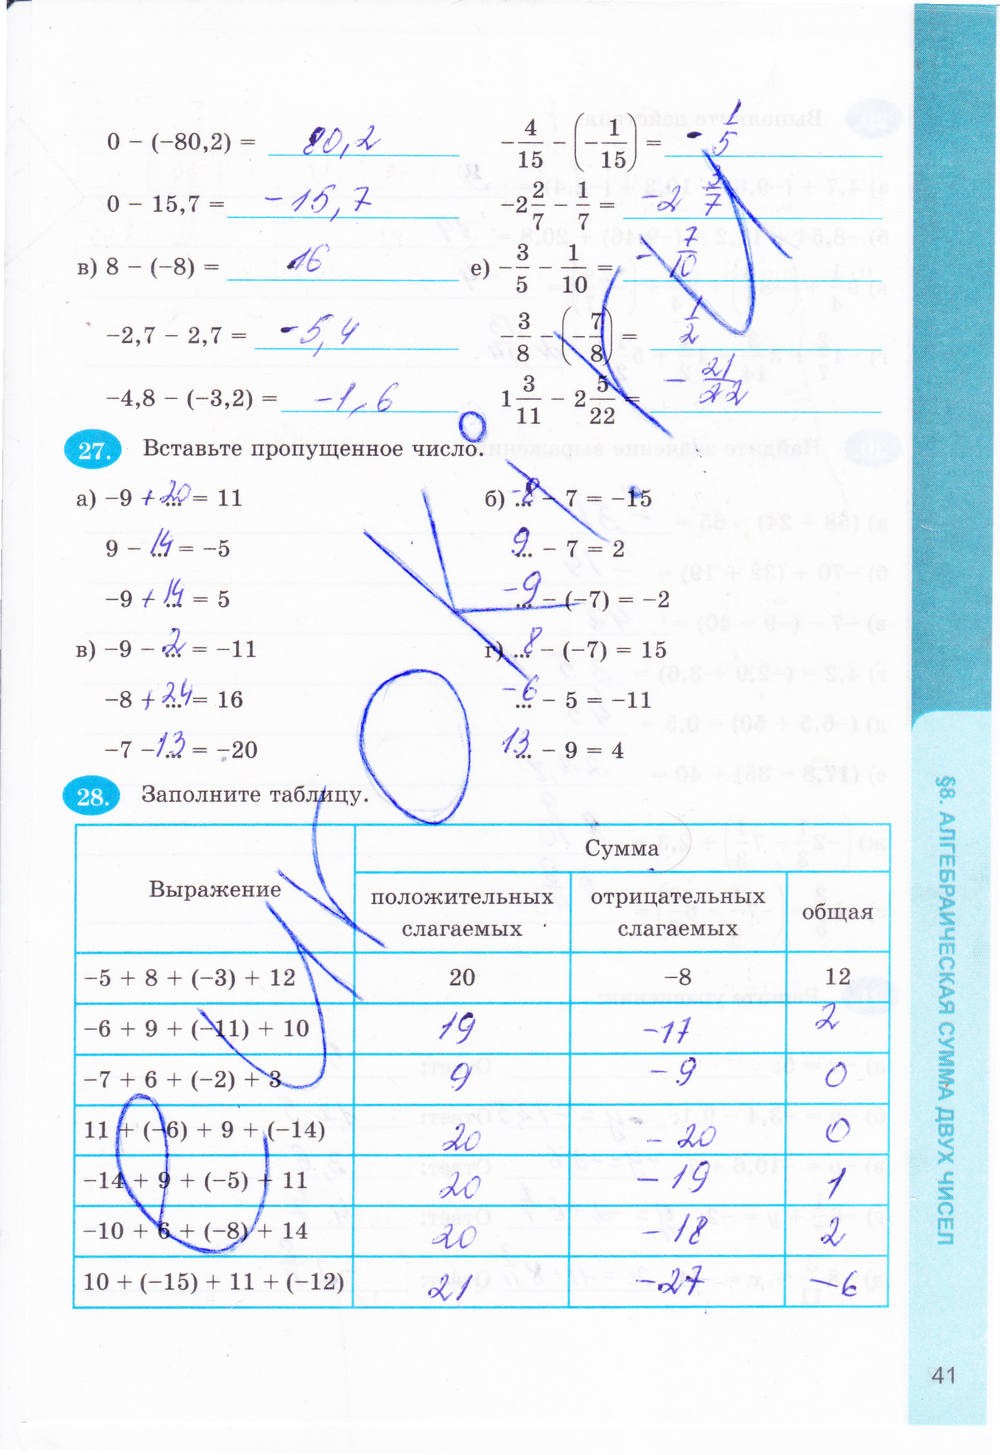 0 − (−80,2) = 80,2
−4/15 − (−1/15) = −1/5
0 − 15,7 = −15,7
−2 2/7 − 1/7 = −2 3/7
в) 8 − (−8) = 16
е) −3/5 − 1/10 = −7/10
−2,7 − 2,7 = −5,4
−3/8 − (−7/8) = 1/2
−4,8 − (−3,2) = −1,6
1 3/11 − 2 5/22 = −21/22
27. Вставьте пропущенное число.
а) −9 + 20 = 11
б) −8 − 7 = −15
9 − 14 = −5
9 − 7 = 2
−9 + 14 = 5
−9 − (−7) = −2
в) −9 − 2 = −11
г) 8 − (−7) = 15
−8 + 24 = 16
−6 − 5 = −11
−7 − 13 = −20
13 − 9 = 4
28. Заполните таблицу.
Выражение
Сумма
положительных слагаемых
отрицательных слагаемых
общая
−5 + 8 + (−3) + 12 20 −8 12
−6 + 9 + (−11) + 10 19 −17 2
−7 + 6 + (−2) + 3 9 −9 0
11 + (−6) + 9 + (−14) 20 −20 0
−14 + 9 + (−5) + 11 20 −19 1
−10 + 6 + (−8) + 14 20 −18 2
10 + (−15) + 11 + (−12) 21 −27 −6
§8. АЛГЕБРАИЧЕСКАЯ СУММА ДВУХ ЧИСЕЛ
41